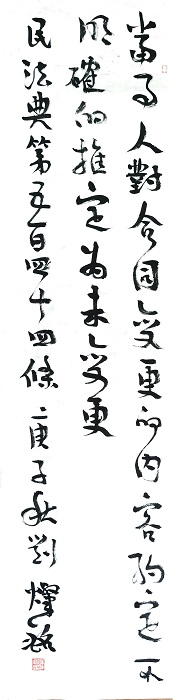 當事人對合同變更的内容約定不
明確的推定為未變更
民法典第五百四十四條 庚子秋劉燿銘